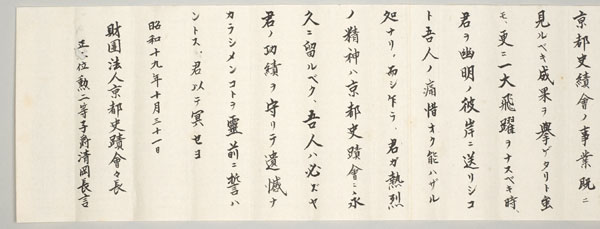 京都史蹟會ノ事業既ニ
見ルベキ成果ヲ擧ゲタリト虽
モ、更ニ一大飛躍ヲナスベキ時、
君ヲ幽明ノ彼岸ニ送リシコ
ト吾人ノ痛惜オク能ハザル
処ナリ、而シ乍ラ、君ガ熱烈
ノ精神ハ京都史蹟會ニ永
久ニ留ルベク、吾人ハ必ズヤ
君ノ功績ヲ守リテ遺憾ナ
カラシメンコトヲ靈前ニ誓ハ
ントス、君以テ冥セヨ
昭和十九年十月三十一日
財團法人京都史蹟會々長
正二位勲二等子爵清岡長言